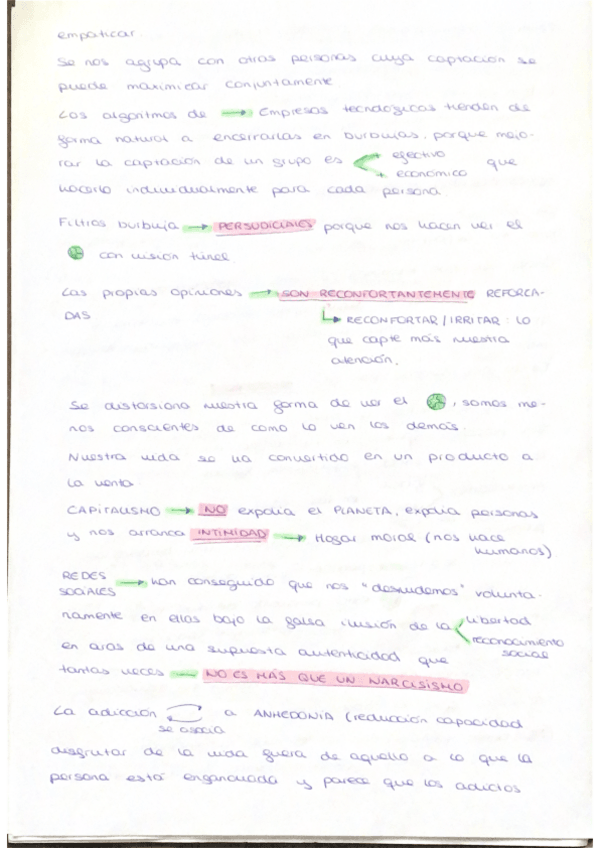 empatizar.
Se nos agrupa con otras personas cuya captación se
puede maximizar conjuntamente
Los algoritmos de → Empresas tecnológicas tienden de
forma natural a encerrarlas en burbujas, porque mejo-
rar la captación de un grupo es + efectivo que
+ económico
hacerlo individualmente para cada persona
Filtros burbuja → PERJUDICIALES porque nos hacen ver el
con visión túnel
Las propias opiniones → SON RECONFORTANTEMENTE REFORZA-
DAS
↳ RECONFORTAR / IRRITAR: lo
que capte más nuestra
atención.
Se distorsiona nuestra forma de ver el , somos me-
nos conscientes de como lo ven los demás.
Nuestra vida se ha convertido en un producto a
la venta.
CAPITALISMO → NO expolia el PLANETA, expolia personas
y nos arranca INTIMIDAD → Hogar moral (nos hace
humanos)
REDES
SOCIALES → han conseguido que nos "desnudemos" volunta-
riamente en ellas bajo la falsa ilusión de la libertad
reconocimiento
social
en aras de una supuesta autenticidad que
tantas veces — NO ES MÁS QUE UN NARCISISMO
La adicción a ANHEDONIA (reducción capacidad
se asocia
disfrutar de la vida fuera de aquello a lo que la
persona está enganchada y parece que los adictos